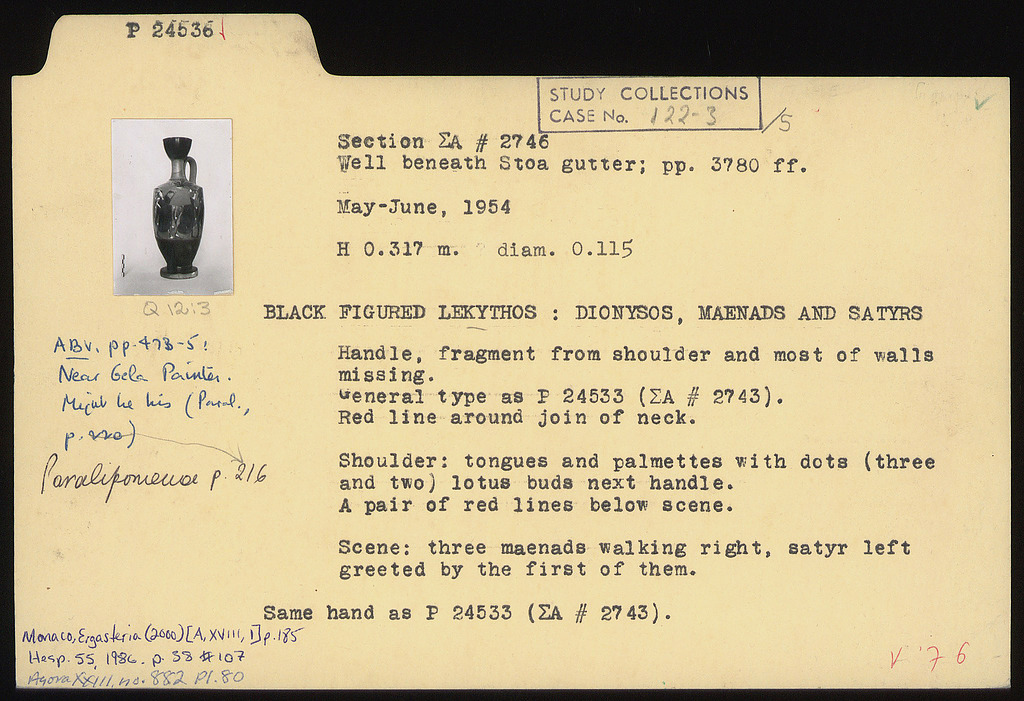 P 24536
STUDY COLLECTIONS
CASE No. 122-3/5
Section ΣA # 2746
Well beneath Stoa gutter; pp. 3780 ff.
May-June, 1954
H 0.317 m. diam. 0.115
Q 12:3
BLACK FIGURED LEKYTHOS : DIONYSOS, MAENADS AND SATYRS
ABV. pp. 473-5:
Near Gela Painter.
Might be his (Paral.,
p. 220)
Paralipomena p. 216
Handle, fragment from shoulder and most of walls
missing.
General type as P 24533 (ΣA # 2743).
Red line around join of neck.
Shoulder: tongues and palmettes with dots (three
and two) lotus buds next handle.
A pair of red lines below scene.
Scene: three maenads walking right, satyr left
greeted by the first of them.
Same hand as P 24533 (ΣA # 2743).
Monaco, Ergasteria (2000) [A, XVIII, 1] p. 185
Hesp. 55, 1986. p. 38 #107
Agora XXIII, no. 882 Pl. 80
V '76